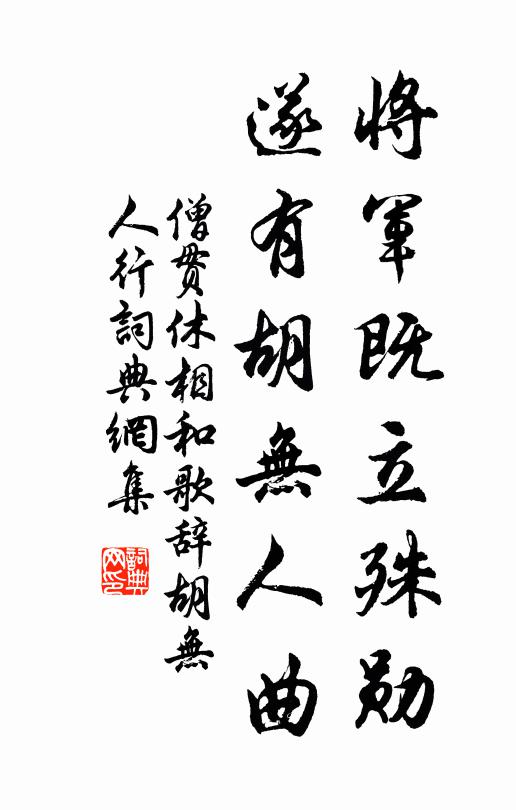 將軍既立殊勛
遂有胡無人曲
僧貫休相和歌辞胡無
人行詞典網集
詞典
网印